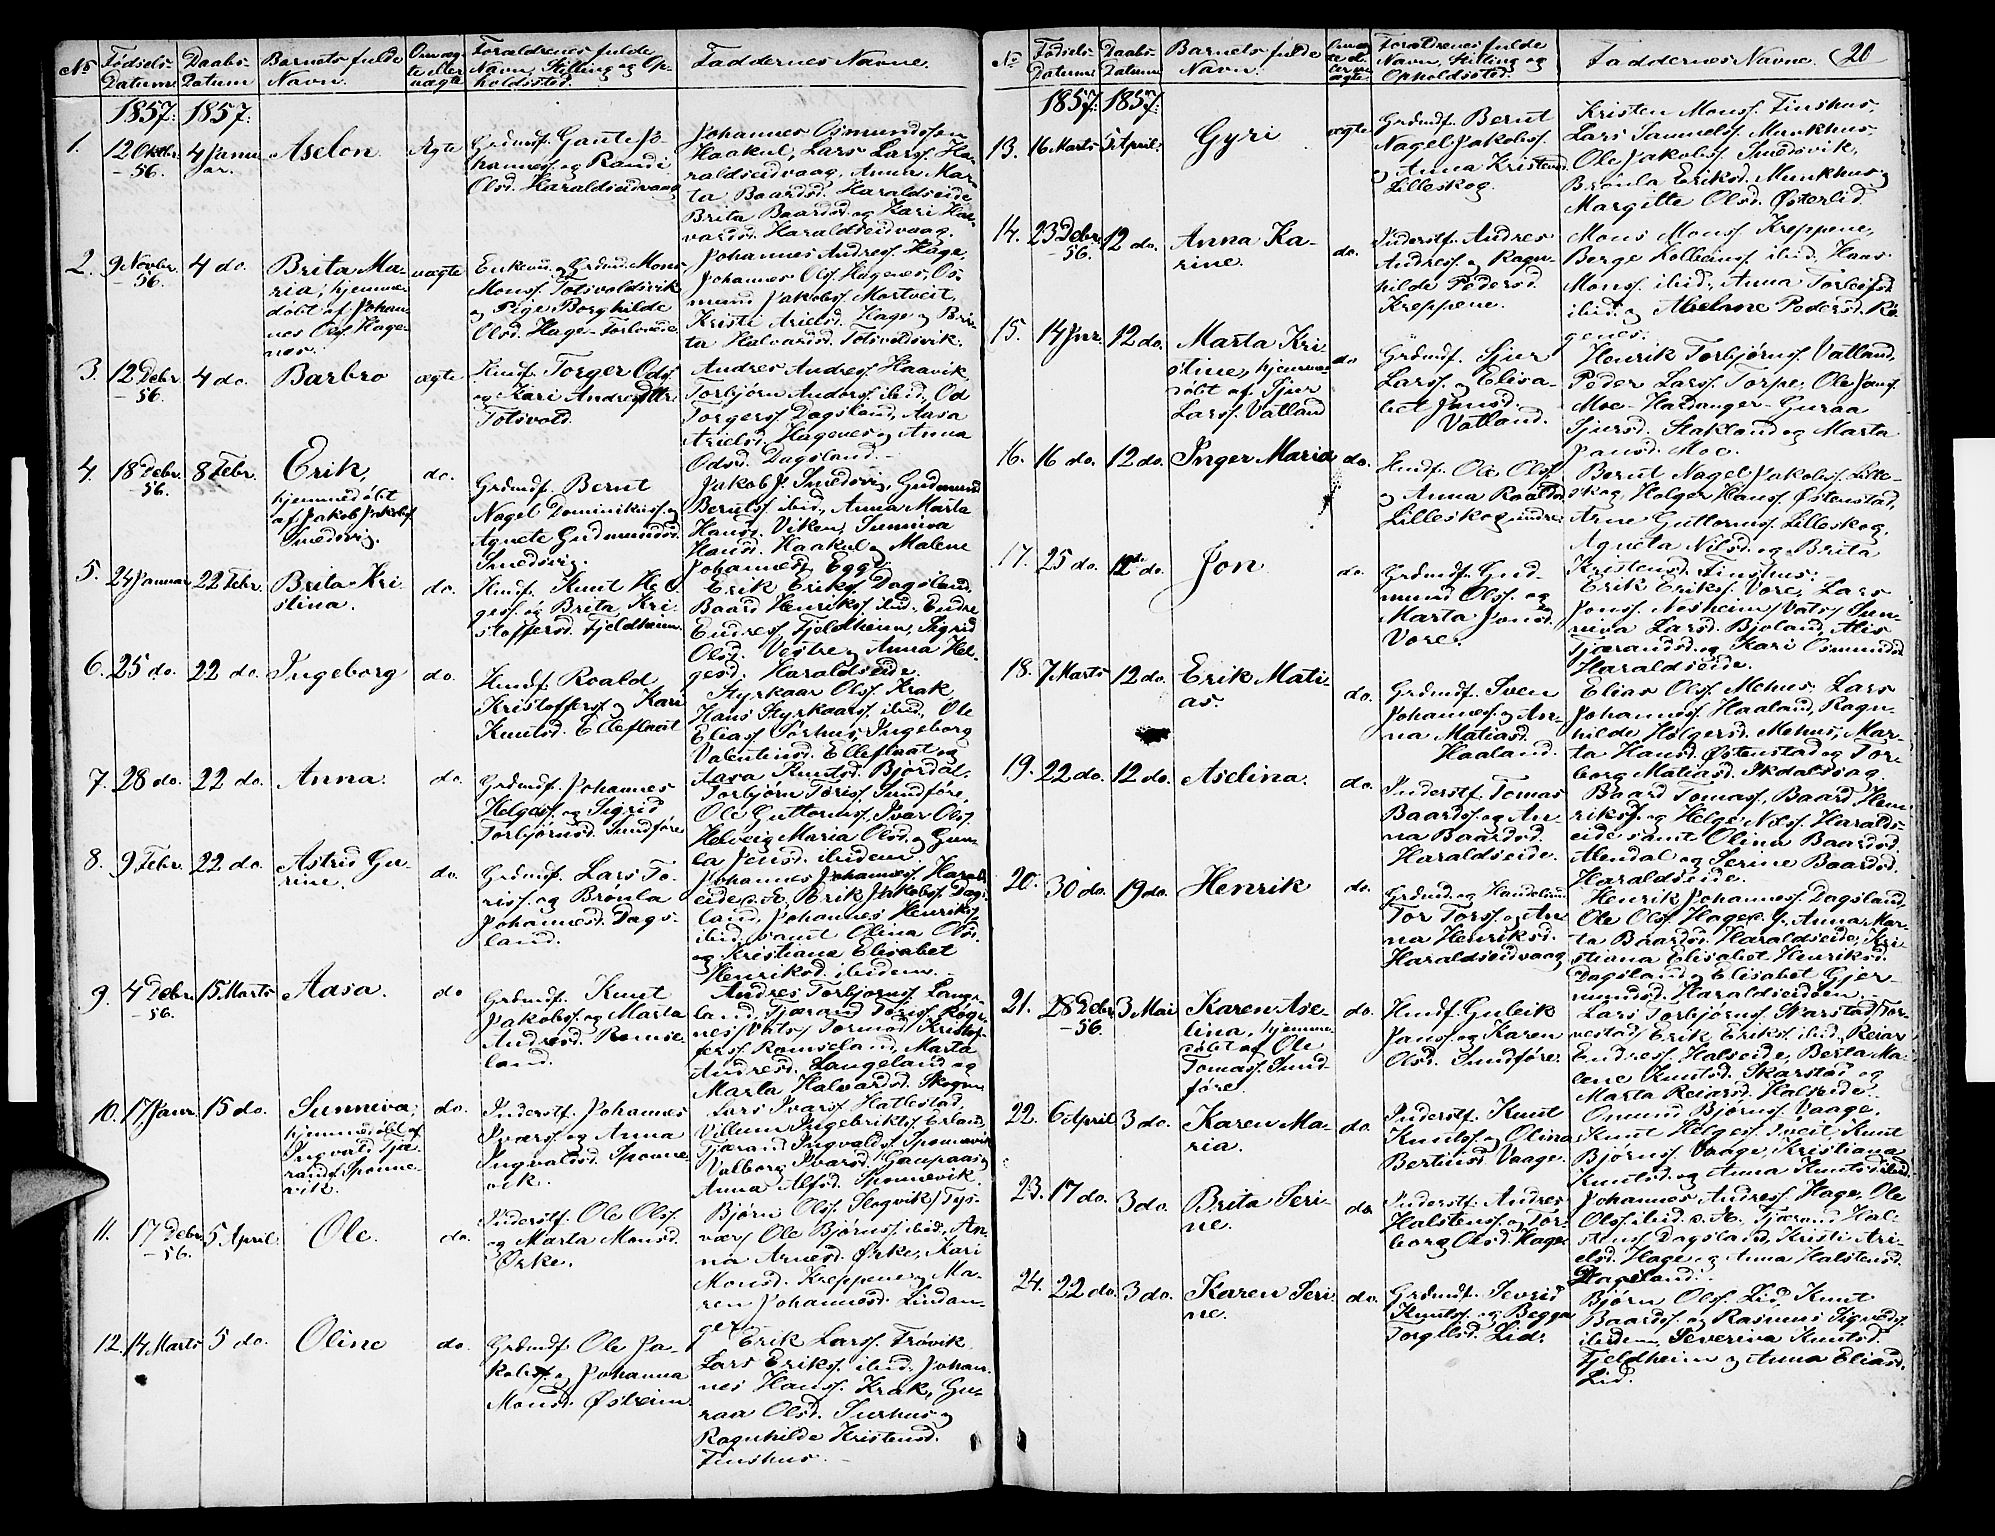 No
Fødsels-
Datum
Daabs-
Datum
Barnets fulde
Navn.
Om æg-
te eller
uægte
Forældrenes fulde
Navn, Stilling og Op-
holdssted.
Faddernes Navne.
1857. 1857.
1.
12 Oktbr
- 56.
4 Janu
ar.
Aselon.
Ægte
Grdmdf. Gaute Jo-
hannesf. og Randi
Olsd. Haraldseidvaag
Johannes Osmundsøn
Haakul, Lars Larsf. Ha-
raldseidvaag, Anna Mar-
ta Baardsd. Haraldseide
Brita Baardsd. og Kari Hal-
vardsd. Haraldseidvaag.
2.
9 Novbr
- 56.
4 do.
Brita Ma-
ria, hjemme-
døbt af Johan-
nes Olsf. Hage-
nes.
uægte
Enkem. og Grdmd. Mons
Monsf. Totsvoldsvik
og Pige Borghilde
Olsd. Hage
Johannes Andresf. Hage,
Johannes Olsf. Hagenes, Os-
mund Jakobsf. Mortveit,
Kristi Arielsd. Hage og Bri-
ta Halvardsd. Totsvoldsvik.
3.
12 Debr
- 56.
4 do.
Barbro
ægte
Hmdf. Torger Odsf.
og Kari Andresdtr.
Totsvold.
Andres Andresf. Haavik,
Torbjørn Andersf. ibid., Od
Torgersf. Dagsland, Aasa
Arielsd. Hagenes og Anna
Odsd. Dagsland.
4.
18 Debr
- 56.
8 Febr.
Erik,
hjemmedøbt
af Jakob Jakobsf.
Smedsvig.
do.
Grdmdf. Bernt
Nagel Dominikusf. og
Agnete Gudmundsd.
Smedsvig.
Jakob J. Smedsvig, Gudmund
Berntsf. ibid., Anna Marta
Hansd. Viken, Sunniva
Hansd. Haakul og Malene
Johannesd. Egge.
5.
24 Januar
22 Febr.
Brita Kri-
stina.
do.
Hmdf. Knut Hel-
gesf. og Brita Kri-
stoffersd. Fjeldheim.
Erik Eriksf. Dagsland,
Baard Henriksf. ibid., Endre
Endresf. Fjeldheim, Sigrid
Olsd. Vestre og Anna Hel-
gesd. Haraldseide.
6.
25 do.
22 do.
Ingeborg
do.
Hmdf. Roald
Kristoffersf. og Kari
Knutsd. Elleflaat
Styrkaar Olsf. Krak
Hans Styrkaarsf. ibid., Ole
Eliasf. Sørhus, Ingeborg
Valentinsd. Elleflaat og
Aasa Knutsd. Bjordal.
7.
28 do.
22 do.
Anna.
do.
Grdmdf. Johannes
Helgesf. og Sigrid
Torbjørnsd. Sundføre
Torbjørn Torisf. Sundføre,
Ole Guttormsf., Ivar Olsf.
Helveig Maria Olsd. og Gun-
la Jensd. ibidem.
8.
9 Febr.
22 do.
Astrid Gu-
rine.
do.
Grdmdf. Lars To-
risf. og Brønla
Johannesd. Dags-
land.
Johannes Johannesf. Harald-
eide, Erik Jakobsf. Dags-
land, Johannes Henriksf.
ibid., samt Olina Olsd.
og Kristiana Elisabet
Henriksd. ibidem.
9.
4 Debr.
- 56.
15 Marts
Aasa.
do
Grdmdf. Knut
Jakobsf. og Marta
Andresd. Ramse-
land.
Andres Torbjørnsf. Lange-
land, Tjærand Torisf. Røg-
nes/Vats/ Tormod Kristof-
fersf. Ramseland, Marta
Andresd. Langeland og
Marta Halvardsd. Skogen
10.
17 Janr
15 do.
Sunniva,
hjemmedøbt af
Ingvald Tjæ-
randsf. Sponne-
vik.
do.
Inderstf. Johannes
Ivarsf. og Anna
Ingvaldsd. Sponne
vik.
Lars Ivarsf. Hatlestad,
Villum Ingebriktsf. Erland,
Tjærand Ingvaldsf. Sponnevik
Valborg Ivarsd. Gaupaas og
Anna Alfsd. Sponnevik.
11.
17 Debr
- 56.
5 April.
Ole.
do.
Inderstf. Ole Olsf.
og Marta Monsd.
Ørke.
Bjørn Olsf. Slogvik/Tys-
vær/ Ole Bjørnsf. ibid., An-
na Arnesd. Ørke, Kari
Monsd. Kreppene og Ma-
ren Johannesd. Lindan-
ger.
12.
14 Marts
5 do.
Oline
do.
Grdmdf. Ole Ja-
kobsf. og Johanna
Monsd. Østreim.
Erik Larsf. Frøvik
Lars Eriksf. ibid. Johan-
nes Hansf. Krak, Gu-
raa Olsd. Surhus og
Ragnhilde Kristensd.
Finshus.
20
No
Fødsels-
Datum
Daabs-
Datum
Barnets fulde
Navn.
Om æg-
te el-
ler u-
ægte
Forældrenes fulde
Navn, Stilling og
Opholdssted.
Faddernes Navne.
1857. 1857.
13.
16 Marts
5 April.
Gyri
ægte
Grdmdf. Bernt
Nagel Jakobsf.
og Anna Kristensd.
Lilleskog.
Kristen Monsf. Finshus,
Lars Samuelsf. Munkhus,
Ole Jakobsf. Smedsvik,
Brønla Eriksd. Munkhus og
Margitte Olsd. Østerlid.
14.
23 Debr.
- 56.
12 do.
Anna Ka-
rine.
do.
Inderstf. Andres
Andresf. og Ragn-
hilde Pedersd.
Kreppene.
Mons Monsf. Kreppene,
Børge Kolbeinsf. ibid., Hans
Monsf. ibid., Anna Torleifsd.
ibid. og Abelone Pedersd. Ra-
genes.
15.
14 Janr.
12 do.
Marta Kri-
stine, hjemme-
døbt af Sjur
Larsf. Vatland
do
Grdmdf. Sjur
Larsf. og Elisa-
bet Jansd.
Vatland.
Henrik Torbjørnsf. Vatland,
Peder Larsf. Torpe, Ole Jansf.
Moe - Hardanger - Guraa
Sjursd. Stakland og Marta
Jansd. Moe.
16.
16 do.
12 do.
Inger Maria
do.
Hmdf. Ole Olsf.
og Anna Roaldsd.
Lilleskog indre.
Bernt Nagel Jakobsf. Lille-
skog, Holger Hansf. Østenstad,
Arne Guttormsf. Lilleskog,
Agneta Nilsd. og Brita
Kristensd. Finshus.
17.
25 do.
12 do.
Jon
do.
Grdmdf. Gud-
mund Olsf. og
Marta Jonsd.
Vore.
Erik Eriksf. Vore, Lars
Jonsf. Nesheim/Vats/ Sun-
niva Larsd. Bjoland, Alis
Tjærandsd. og Kari Osmundsd
Haraldseide.
18.
7 Marts
12 do.
Erik Mati-
as.
do.
Grdmdf. Sven
Johannesf. og An-
na Matiasd.
Haaland.
Elias Olsf. Mehus, Lars
Johannesf. Haaland, Ragn-
hilde Holgersd. Mehus, Mar-
ta Hansd. Østenstad og Tor-
borg Matiasd.
19.
22 do.
12 do.
Aselina.
do.
Inderstf. Tomas
Baardsf. og An-
na Baardsd.
Haraldseide.
Baard Tomasf., Baard Hen-
riksf. og Helge Nilsf. Haralds-
eide samt Olina Baardsd.
Alendal og Serine Baardsd.
Haraldseide.
20.
30 do.
19 do.
Henrik
do.
Grdmd. og Handelsmd.
Tor Torsf. og An
na Henriksd.
Haraldseidvaag
Henrik Johannesf. Dagsland,
Ole Olsf. Hage, Anna Mar-
ta Baardsd. Haraldseide, Kri-
stiana Elisabet Henriksd.
Dagsland og Elisabet Gjer-
mundsd. Haraldseidøen.
21.
28 Debr
- 56.
3 Mai
Karen Ase-
lina, hjemme
døbt af Ole
Tomasf. Sund-
føre.
do.
Hmdf. Guleik
Jansf. og Karen
Olsd. Sundføre.
Lars Torbjørnsf. Skarstad/Tor-
vestad/ Erik Eriksf. ibid., Reiar
Endresf. Halseide, Berta Ma-
lene Knutsd. Skarstad og
Marta Reiarsd. Halseide.
22.
6 April
3 do.
Karen Ma-
ria.
do.
Inderstf. Knut
Knutsf. og Olina
Bertinsd. Vaage.
Omund Bjørnsf. Vaage,
Knut Helgesf. Tveit, Knut
Bjørnsf. Vaage, Kristiana
Knutsd. og Anna Knutsd. ibid.
23.
17 do.
3 do.
Brita Seri-
ne.
do.
Inderstf. Andres
Halstensf. og Tor-
borg Olsd. Hage.
Johannes Andresf. Hage, Ole
Olsf. ibid., Tjærand Hal-
stensf. Dagsland, Kristi Ari-
elsd. Hage og Anna Halstensd.
Dagsland.
24.
22 do.
3 do.
Karen Seri
ne.
do.
Grdmdf. Sevrid
Knutsf. og Begga
Torgilsd. Lid.
Bjørn Olsf. Lid, Knut
Baardsf. og Rasmus Sigvaldsf.
ibidem, Severina Knutsd.
Fjeldheim og Anna Eliasd.
Lid.